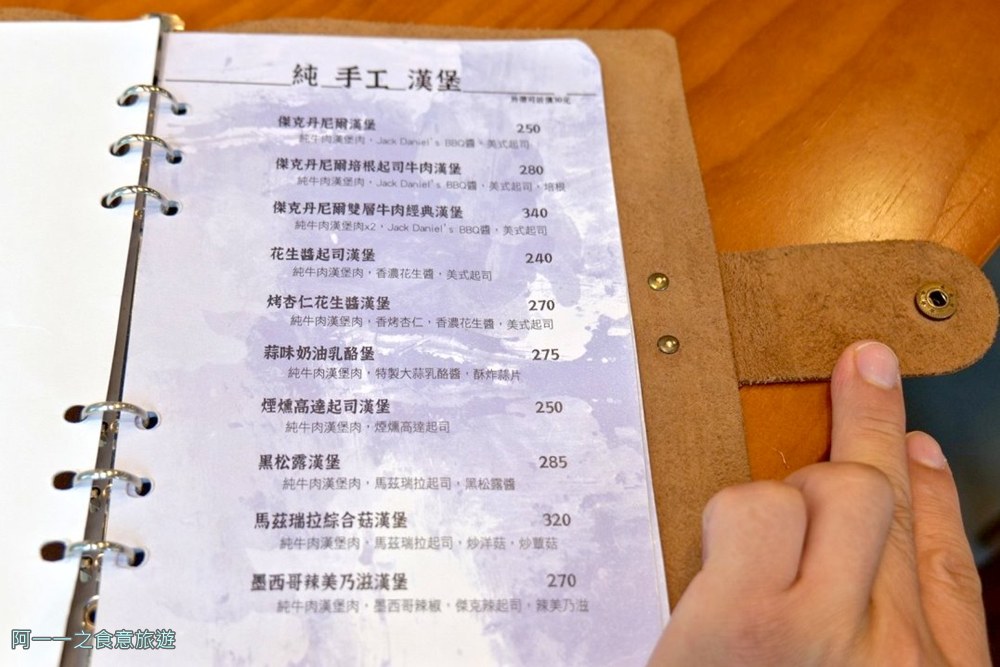 純 手工 漢堡
傑克丹尼爾漢堡 250
純牛肉漢堡肉，Jack Daniel's BBQ醬、美式起司
傑克丹尼爾培根起司牛肉漢堡 280
純牛肉漢堡肉，Jack Daniel's BBQ醬，美式起司，培根
傑克丹尼爾雙層牛肉經典漢堡 340
純牛肉漢堡肉x2，Jack Daniel's BBQ醬，美式起司
花生醬起司漢堡 240
純牛肉漢堡肉，香濃花生醬，美式起司
烤杏仁花生醬漢堡 270
純牛肉漢堡肉，香烤杏仁，香濃花生醬，美式起司
蒜味奶油乳酪堡 275
純牛肉漢堡肉，特製大蒜乳酪醬，酥炸蒜片
煙燻高達起司漢堡 250
純牛肉漢堡肉，煙燻高達起司
黑松露漢堡 285
純牛肉漢堡肉，馬茲瑞拉起司，黑松露醬
馬茲瑞拉綜合菇漢堡 320
純牛肉漢堡肉，馬茲瑞拉起司，炒洋菇，炒蕈菇
墨西哥辣美乃滋漢堡 270
純牛肉漢堡肉，墨西哥辣椒，傑克辣起司，辣美乃滋
阿一一之食意旅遊